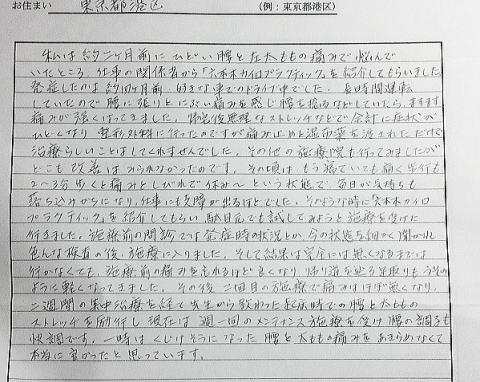 お住まい 東京都港区 (例：東京都港区)
私は約二ヶ月前にひどい腰と左太ももの痛みで悩んで
いたところ、仕事の関係者から「六本木カイロプラクティック」を紹介してもらいました。
発症したのは約四ヶ月前、好きな車でのドライブ中でした。長時間運転
していたので腰に張りとにぶい痛みを感じ腰を捻るなどしていたら、ますます
痛みが強くなってきました。帰宅後無理なストレッチなどで余計に症状が
ひどくなり 整形外科に行ったのですが痛み止めと湿布薬を渡されただけで
治療らしいことはしてくれませんでした。その他の施療院も行ってみましたが
どこも改善はみられなかったのです。その頃はもう寝ていても痛く歩行も
2〜3分歩くと痛みとしびれで休み〜という状態で、毎日が気持ちも
落ち込みがちになり、仕事にも支障が出るほどでした。そのような時に六本木カイロ
プラクティックを紹介してもらい駄目元でも試してみようと施療を受けに
行きました。施療前の問診では発症時の状況とか今の状態を細かく聞かれ
色んな検査の後、施療に入りました。そして結果は完全には無くなるまでは
行かなくても、施療前の痛みを忘れるほど良くなり 帰り道を辿る足取りもうその
ように軽くなってきました。その後 二回目の施療で痛みはほぼ無くなり、
二週間の集中治療を経て先生から教わった起床時での腰と太ももの
ストレッチを励行し現在は週一回のメンテナンス施療を受け腰の調子も
快調です。一時はくじけそうになった腰と太もも痛みをあきらめなくて
本当に良かったと思っています。